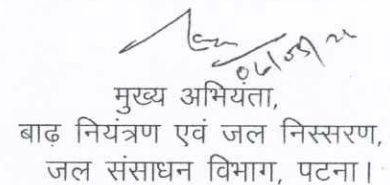 मुख्य अभियंता,
बाढ़ नियंत्रण एवं जल निस्सरण,
जल संसाधन विभाग, पटना।